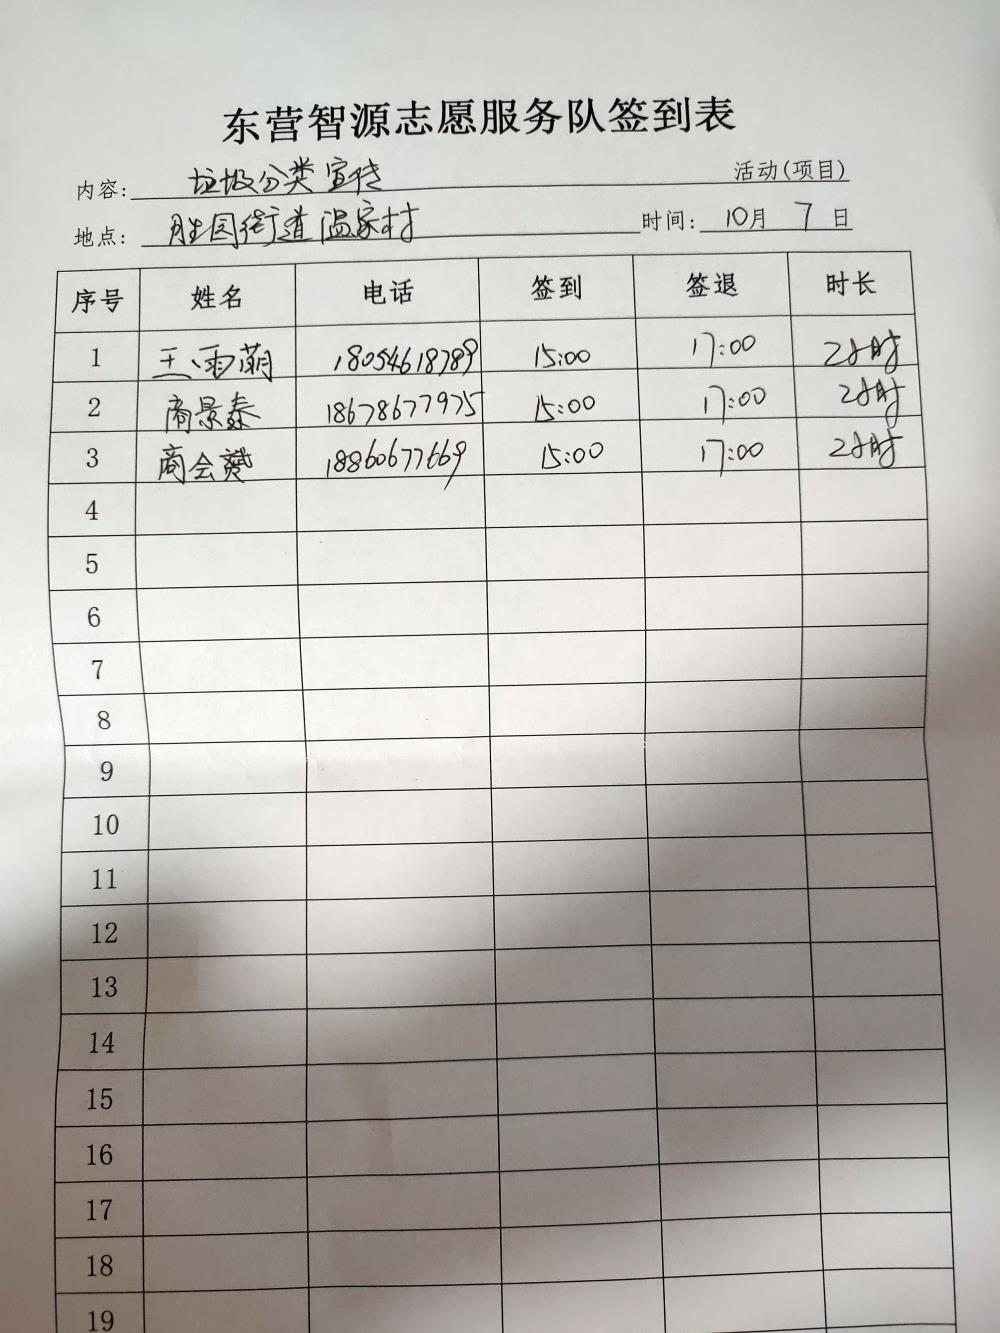 东营智源志愿服务队签到表
内容: 垃圾分类宣传 活动(项目)
地点: 胜园街道温家村 时间: 10月 7 日
序号 姓名 电话 签到 签退 时长
1 王雨萌 18054618789 15:00 17:00 2小时
2 商景泰 18678677975 15:00 17:00 2小时
3 商会赟 18860677669 15:00 17:00 2小时
4
5
6
7
8
9
10
11
12
13
14
15
16
17
18
19